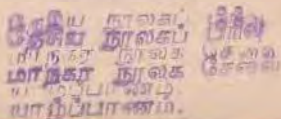 தேசிய நூலகப் பிரிவு
மாநகர நூலக சேவை
யாழ்ப்பாணம்.